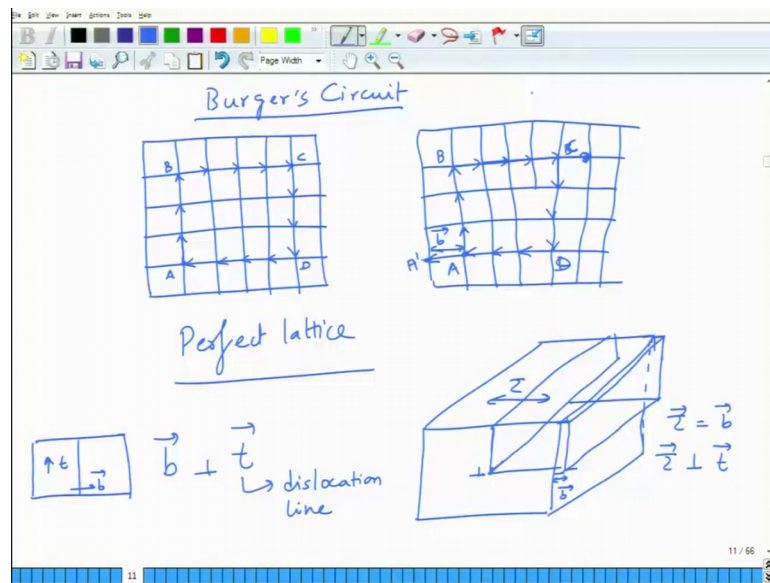 File Edit View Insert Actions Tools Help
B I
Page Width
Burger's Circuit
B C
A D
B C
b
A' A D
Perfect lattice
τ
t b
b ⊥ t
dislocation
line
⊥ ⊥
b
τ = b
τ ⊥ t
11 / 66
11